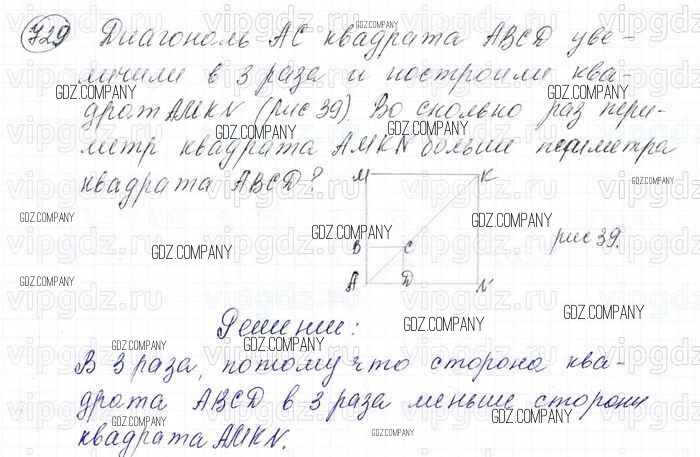 729 Диагональ АС квадрата ABCD уве-
личили в 3 раза и построили ква-
драт AMKN (рис 39). Во сколько раз пери-
метр квадрата AMKN больше периметра
квадрата ABCD?
M K
B C
рис 39.
A D N
Решение:
В 3 раза, потому что сторона ква-
драта ABCD в 3 раза меньше стороны
квадрата AMKN.
GDZ.COMPANY
vipgdz.ru